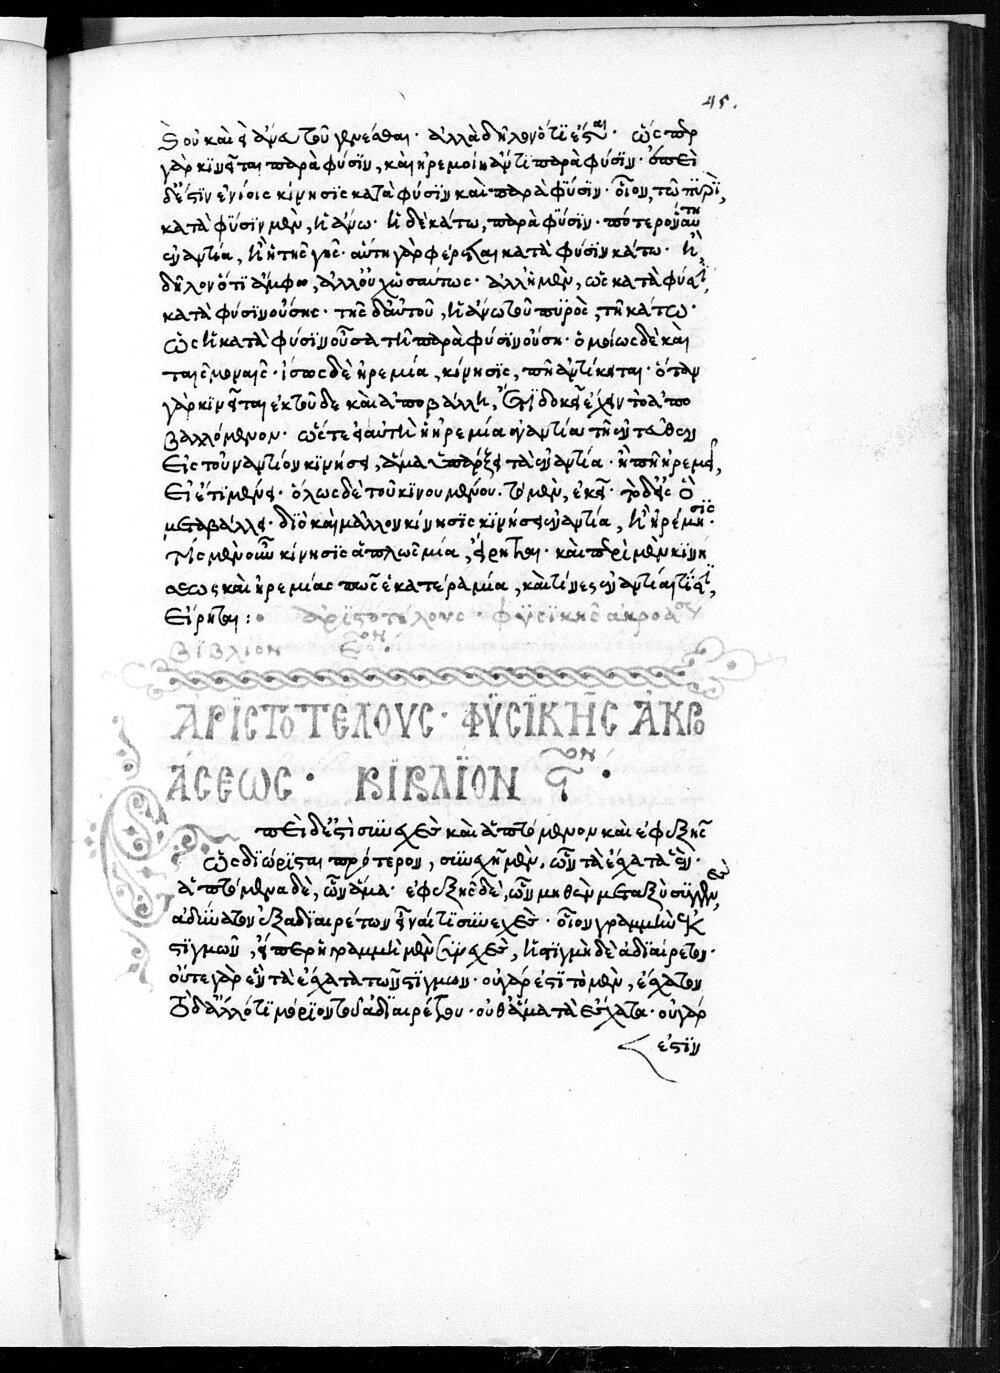 45.
οὐ καὶ ἐὰν ἄνευ τοῦ γενέσθαι · ἀλλὰ δῆλον ὅτι ἔσται · ὥσπερ
γὰρ κινεῖται παρὰ φύσιν, καὶ ἠρεμοίη ἂν τι παρὰ φύσιν · ἐπεὶ
δέ ἐστιν ἐνίοις κίνησις κατὰ φύσιν καὶ παρὰ φύσιν · οἷον, τῷ πυρὶ,
κατὰ φύσιν μὲν, ἡ ἄνω · ἡ δὲ κάτω, παρὰ φύσιν · πότερον αὕτη
ἐναντία, ἢ ἡ τῆς γῆς · αὕτη γὰρ φέρεται κατὰ φύσιν κάτω · ἢ,
δῆλον ὅτι ἄμφω, ἀλλ' οὐχ ὡσαύτως · ἀλλ' ἡ μὲν, ὡς κατὰ φύσιν,
κατὰ φύσιν οὔσης · τῆς δ' αὐτοῦ, ἡ ἄνω τοῦ πυρὸς, τῇ κάτω ·
ὡς ἡ κατὰ φύσιν οὖσα τῇ παρὰ φύσιν οὔσῃ · ὁμοίως δὲ καὶ
ταῖς μοναῖς · ἴσως δὲ ἠρεμία, κίνησις, πῇ ἀντίκειται · ὅταν
γὰρ κινεῖται ἐκ τοῦδε καὶ ἀποβάλλῃ, ἔτι δοκεῖ ἔχειν τὸ ἀπο
βαλλόμενον · ὥστε εἰ αὐτὴ ἡ ἠρεμία ἐναντία τῇ ἐντεῦθεν
εἰς τοὐναντίον κινήσει, ἅμα ὑπάρξει τὰ ἐναντία · ἢ πῇ ἠρεμεῖ,
εἰ ἔτι μένει · ὅλως δὲ τοῦ κινουμένου · τὸ μὲν, ἐκεῖ · τὸ δ' εἰς ὃ
μεταβάλλει · διὸ καὶ μᾶλλον κίνησις κινήσει ἐναντία, ἢ ἠρέμησις ·
τῆς μὲν οὖν κίνησις ἁπλῶς μία, εἴρηται · καὶ περὶ μὲν κινή
σεως καὶ ἠρεμίας πῶς ἑκατέρα μία, καὶ τίνες ἐναντίαι τίσι,
εἴρηται :· ἀριστοτέλους · φυσικῆς ἀκροάσεως
βιβλίον
ἈΡΙΣΤΟΤΈΛΟΥΣ · ΦΥΣΙΚΗ͂Σ ἈΚΡΟ
ΆΣΕΩΣ · ΒΙΒΛΊΟΝ
πεὶ δέ ἐστι συνεχὲς καὶ ἁπτόμενον καὶ ἐφεξῆς
ὡς διώρισται πρότερον, συνεχῆ μὲν, ὧν τὰ ἔσχατα ἕν ·
ἁπτόμενα δὲ, ὧν ἅμα · ἐφεξῆς δὲ, ὧν μηθὲν μεταξὺ συγγενὲς,
ἀδύνατον ἐξ ἀδιαιρέτων εἶναί τι συνεχὲς · οἷον γραμμὴν ἐκ
στιγμῶν, εἴπερ ἡ γραμμὴ μὲν συνεχὲς, ἡ στιγμὴ δὲ ἀδιαίρετον ·
οὔτε γὰρ ἓν τὰ ἔσχατα τῶν στιγμῶν · οὐ γάρ ἐστι τὸ μὲν, ἔσχατον
τὸ δ' ἄλλό τι μόριον τοῦ ἀδιαιρέτου · οὐθ' ἅμα τὰ ἔσχατα · οὐ γάρ
ἐστιν